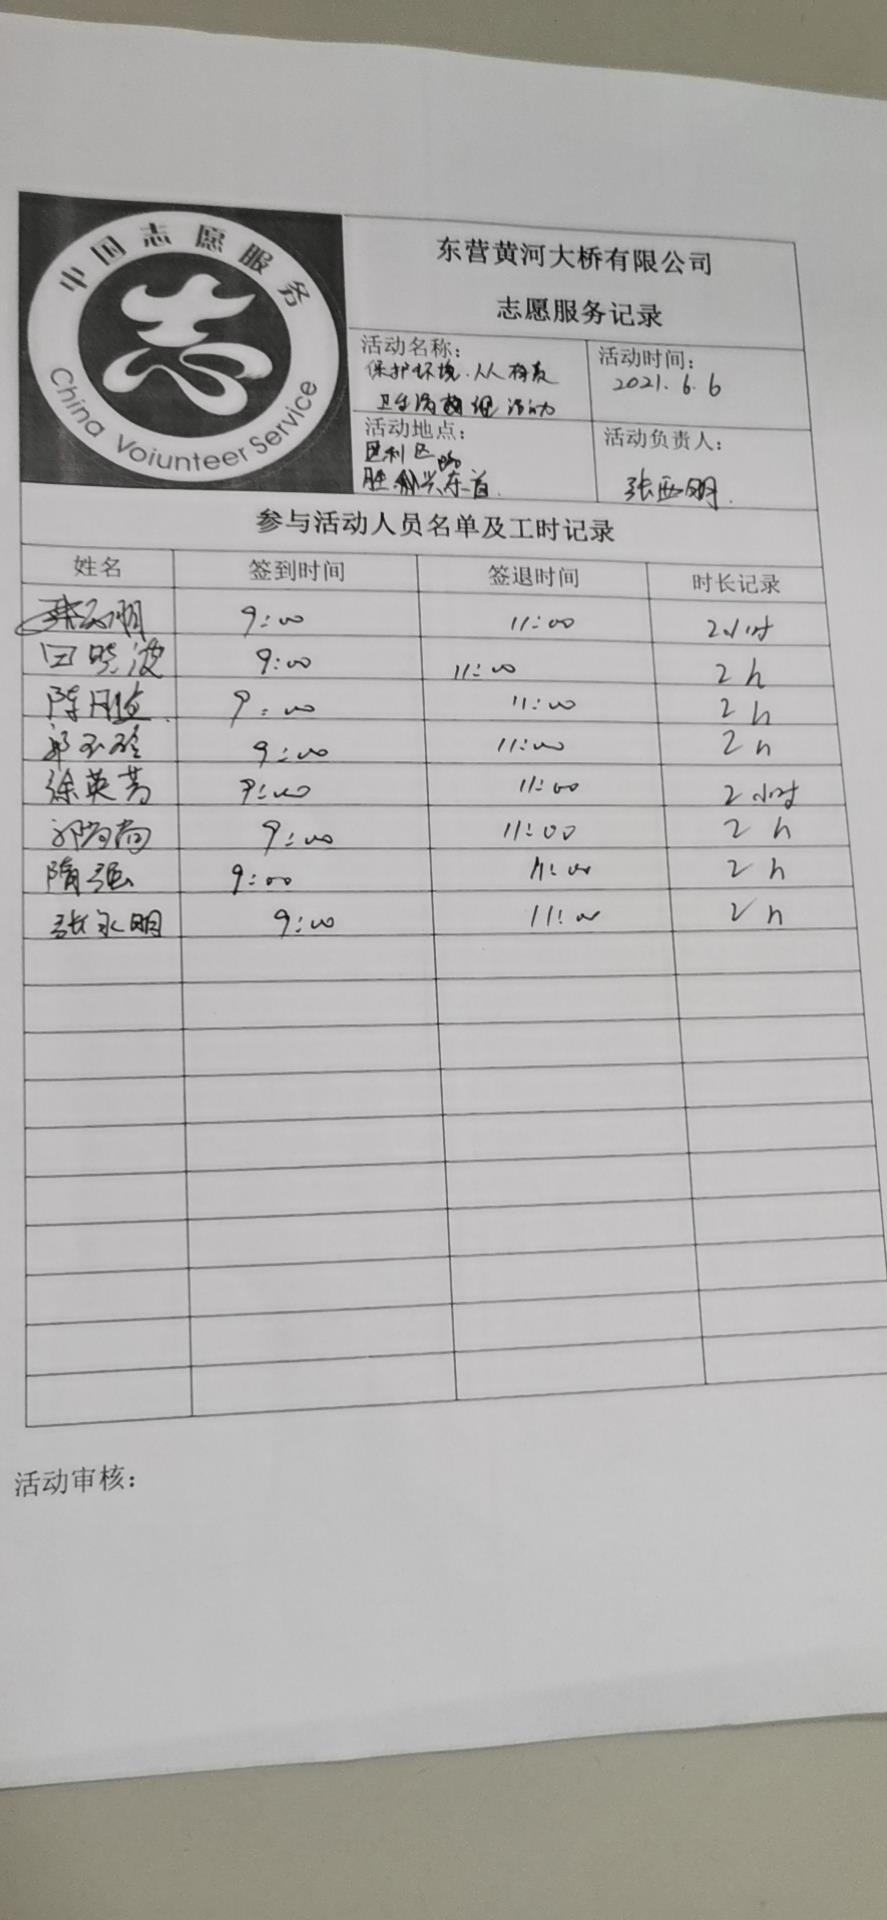 中国志愿服务
China Voiunteer Service
东营黄河大桥有限公司
志愿服务记录
活动名称：
保护环境.从
卫生 活动
活动时间：
2021.6.6
活动地点：
垦利区
胜利 东首
活动负责人：
张西明.
参与活动人员名单及工时记录
姓名 签到时间 签退时间 时长记录
9:00 11:00 2小时
田晓波 9:00 11:00 2h
陈月 9:00 11:00 2h
郭玉玲 9:00 11:00 2h
徐英芳 9:00 11:00 2小时
9:00 11:00 2h
隋强 9:00 11:00 2h
张永明 9:00 11:00 2h
活动审核：